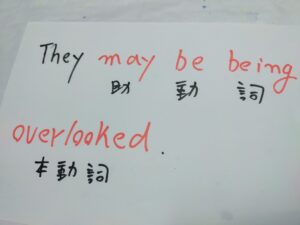 They may be being
助 動 詞
overlooked.
本動詞